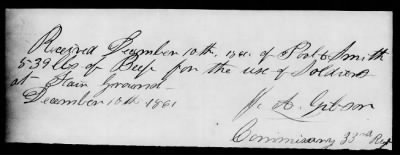 Received December 10th, 1861 of Robt Smith
539 lbs of Beef for the use of Soldiers
at Fair Ground
December 10th 1861
W. A. Gibson
Commissary 33rd Regt